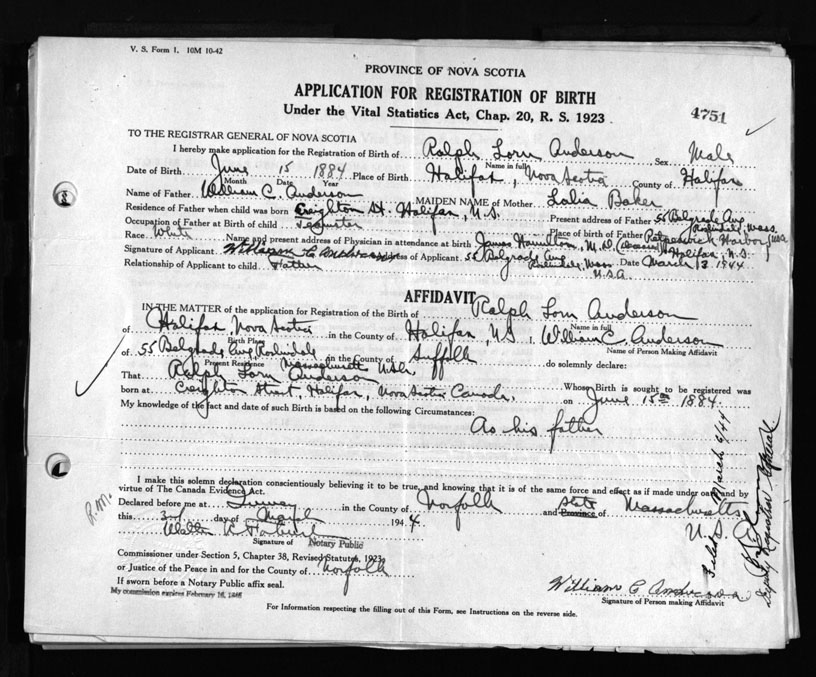 V. S. Form 1. 10M 10-42
PROVINCE OF NOVA SCOTIA
APPLICATION FOR REGISTRATION OF BIRTH
Under the Vital Statistics Act, Chap. 20, R. S. 1923
4751
TO THE REGISTRAR GENERAL OF NOVA SCOTIA
I hereby make application for the Registration of Birth of Ralph Lorn Anderson Sex Male
Name in full
Date of Birth June 15 1884 Place of Birth Halifax, Nova Scotia County of Halifax
Month Date Year
Name of Father William C. Anderson MAIDEN NAME of Mother Baker
Residence of Father when child was born Creighton St. Halifax, N.S. Present address of Father 55 Belgrade Ave Mass.
Occupation of Father at Birth of child Teamster Place of birth of Father Harbor
Race White Name and present address of Physician in attendance at birth James Hamilton, M.D. Halifax N.S.
Signature of Applicant Address of Applicant 55 Belgrade Ave Mass Date March 3 1944
U.S.A
Relationship of Applicant to child Father
AFFIDAVIT
IN THE MATTER of the application for Registration of the Birth of Ralph Lorn Anderson
Name in full
of Halifax, Nova Scotia in the County of Halifax, N.S. , William C. Anderson
Birth Place
Name of Person Making Affidavit
of 55 Belgrade Ave Roslindale in the County of Suffolk do solemnly declare:
Present Residence Massachusetts
That Ralph Lorn Anderson Whose Birth is sought to be registered was
born at Creighton Street, Halifax, Nova Scotia Canada, on June 15th 1884.
My knowledge of the fact and date of such Birth is based on the following Circumstances:
As his father
I make this solemn declaration conscientiously believing it to be true, and knowing that it is of the same force and effect as if made under oath and by
virtue of The Canada Evidence Act.
Declared before me at Quincy in the County of Norfolk and Province of State Massachusetts
this 3rd day of March 1944 U.S.A
Walter
Signature of Notary Public
Commissioner under Section 5, Chapter 38, Revised Statutes, 1923
or Justice of the Peace in and for the County of Norfolk
If sworn before a Notary Public affix seal.
My commission expires February 16, 1946
William C Anderson
Signature of Person making Affidavit
For Information respecting the filling out of this Form, see Instructions on the reverse side.
Filed March 6/44
Deputy Registrar General